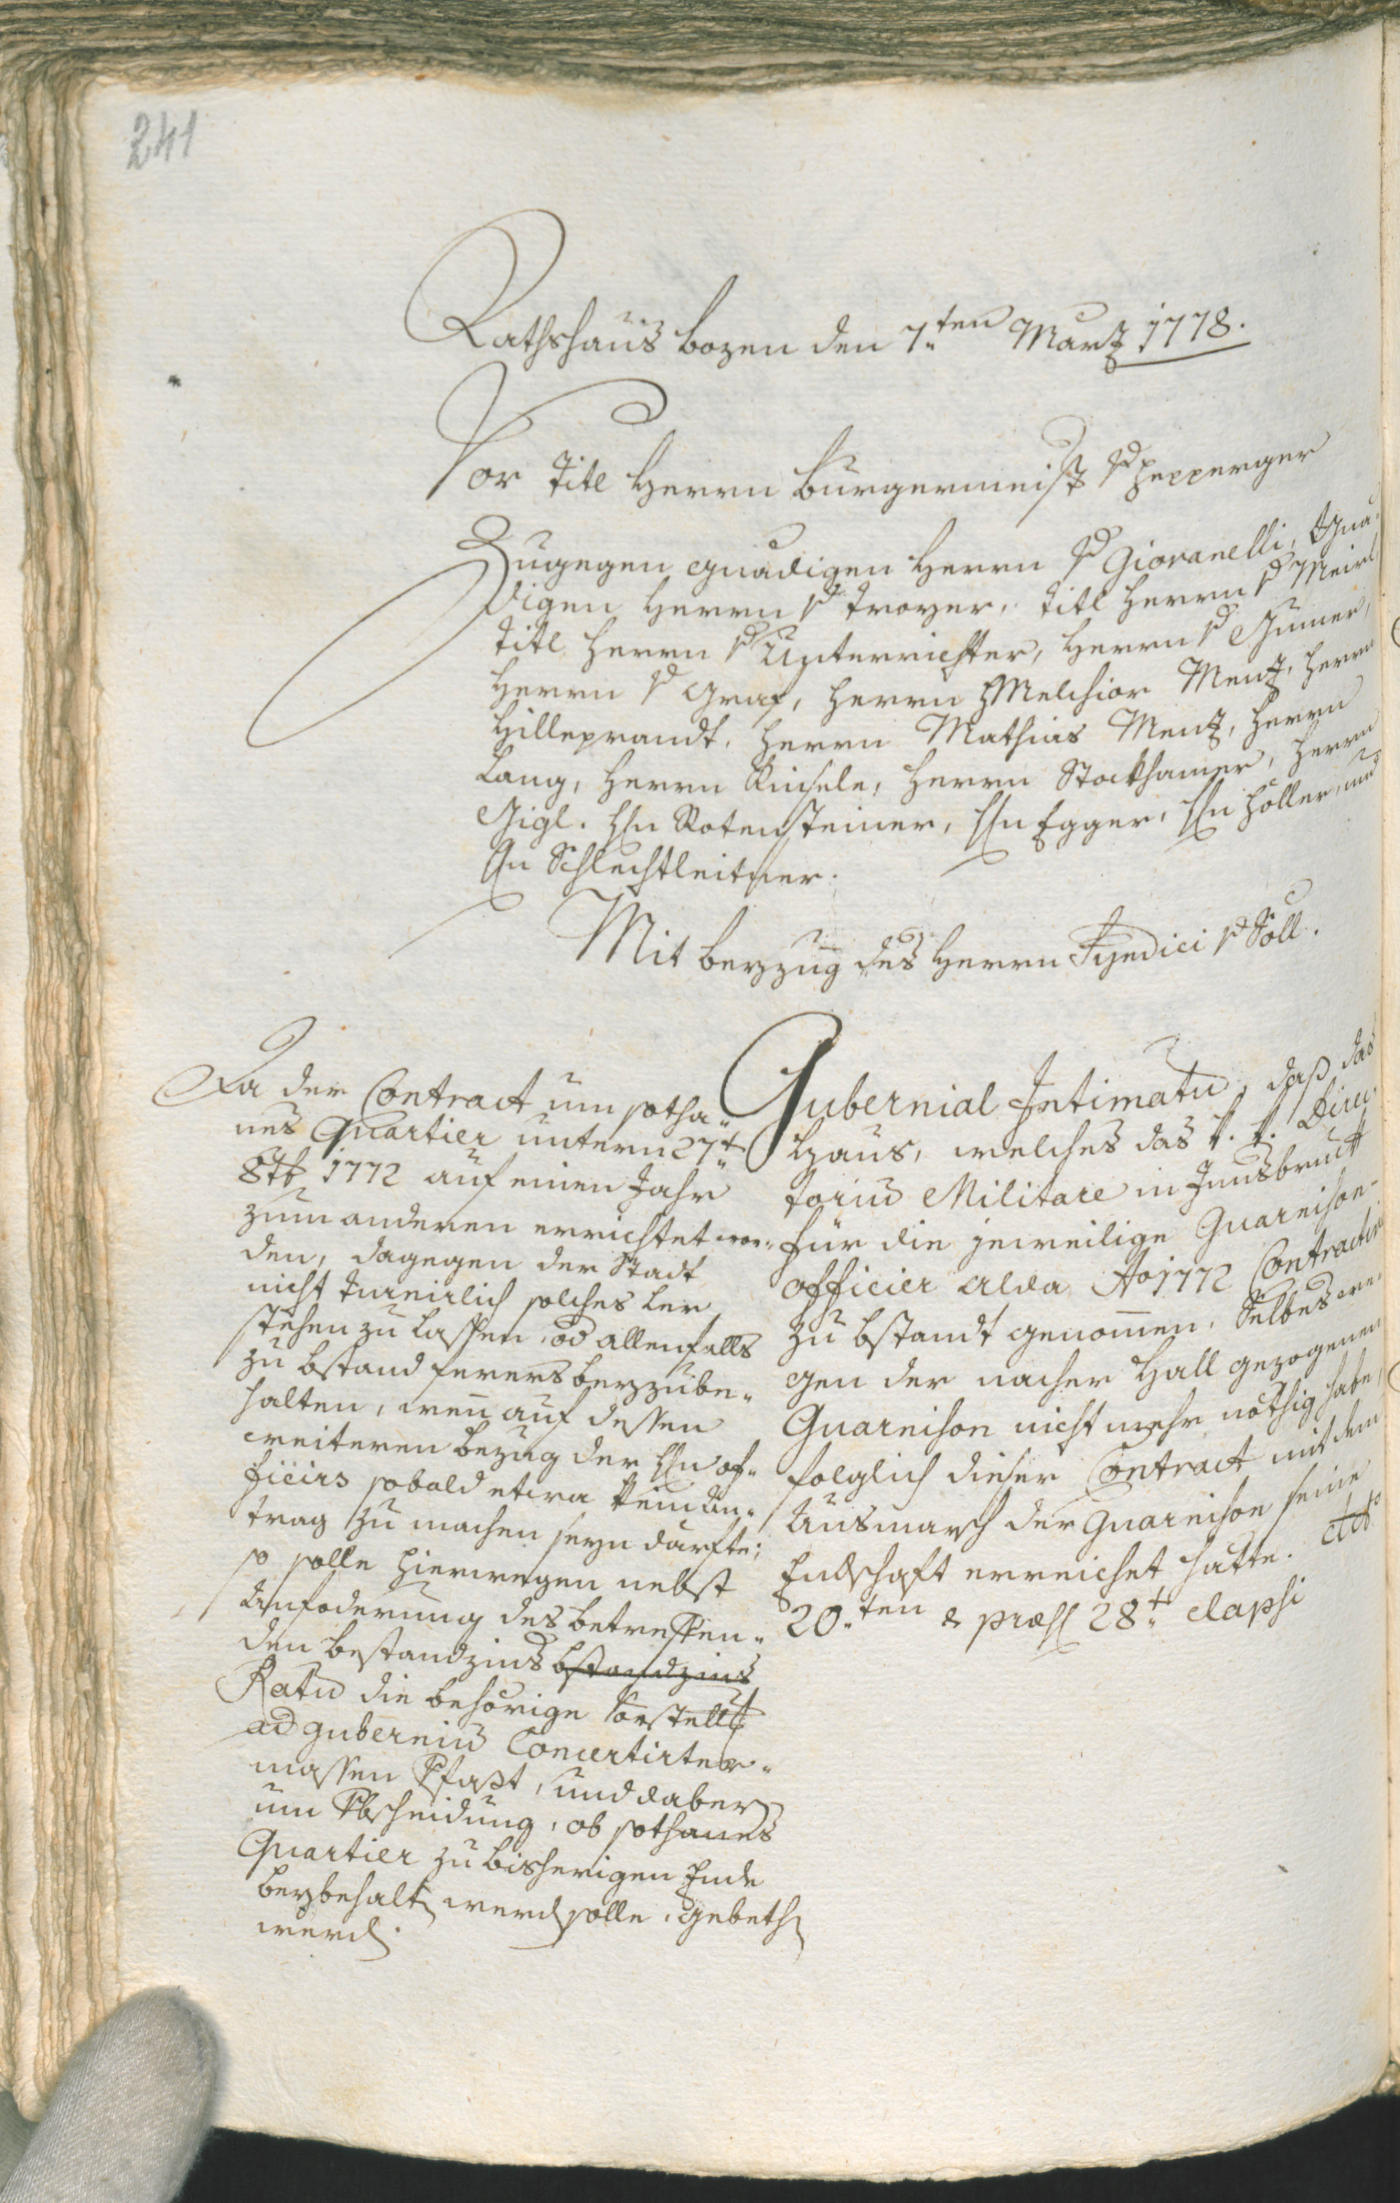 241
Rathshaus Bozen den 7.ten Martz 1778.
Vor Titl Herrn Burgermeistr v Hepperger
Zugegen gnädigen Herrn v Giovanelli, Gnä-
digen Herrn v Troyer, Titl Herrn v Meirl
Titl Herrn v Unterrichter, Herrn v Gumer,
Herrn v Graf, Herrn Melchior Mentz, Herrn
Hilleprandt, Herrn Mathias Mentz, Herrn
Lang, Herrn Kinsele, Herrn Stockhamer, Herrn
Gigl. Hn Rotensteiner, Hn Egger, Hn Höller, und
Hn Schlechtleitner.
Mit beyzug des Herrn Syndici v Söll.
Da der Contract um sotha-
nes Quartier untern 27.t
8tb 1772 auf einen Jahr
zum anderen errichtet wor-
den, dagegen der Stadt
nicht thurnirlich solches ler
stehen zu lassen, od allenfalls
zu bstand ferers beyzube-
halten, wen̅ auf dessen
weiteren bezug der Hn of-
ficiers sobald etwa kein An-
trag zu machen seyn darfte;
so solle hierwegen nebst
Anfoderung des betreffen-
den bestandzins bstandzins
Ratu die behörige Vorstellg
ad guberniu Concertirter-
massen Vfaßt, und dabey
um Vbscheidung, ob sothanes
Quartier zu bisherigen Ende
beybehaltn werd solle, gebethn
werd.
Gubernial Intimatu, daß das
Haus, welches das k. k. Direc-
toriu Militare in Innsbruck
für die jeweilige Guarnison-
officier alda Ao 1772 Contracter
zu bstandt genom̅en, Selbes we-
gen der nacher Hall gezogenen
Guarnison nicht mehr nöthig habe,
folglich dieser Contract mit dem
Ausmarsch der Guarnison seine
Endschaft erreichet hatte. ddto
20.ten & præs 28.t elapsi